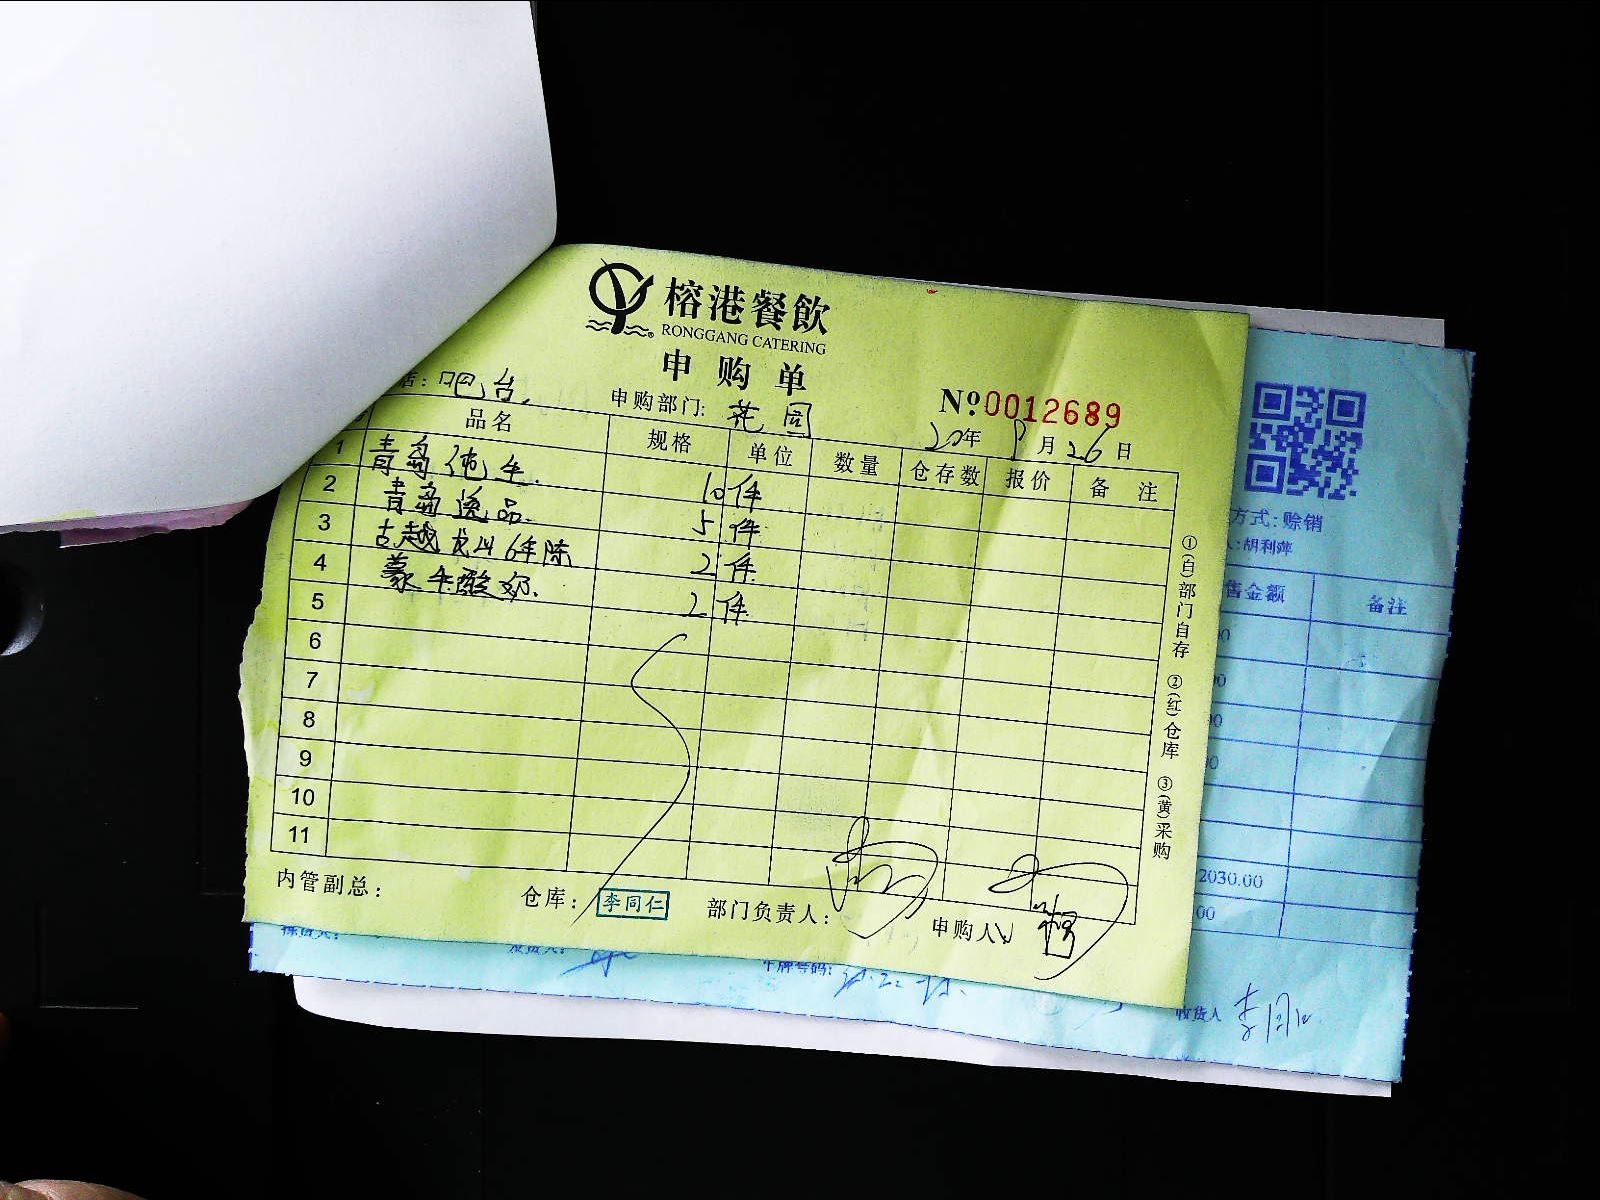 榕港餐飲
RONGGANG CATERING
申购单
店: 吧台.
申购部门: 花园
Nº 0012689
20年 8月26日
品名 规格 单位 数量 仓存数 报价 备 注
1 青岛纯生. 10 件
2 青岛逸品. 5 件
3 古越龙山6年陈 2 件
4 蒙牛酸奶. 2 件
5
6
7
8
9
10
11
①(白)部门自存 ②(红)仓库 ③(黄)采购
内管副总: 仓库: 李同仁 部门负责人: 申购人:
方式: 赊销
人: 胡利萍
售金额 备注
00
00
00
00
2030.00
00
车牌号码:
收货人 李同仁